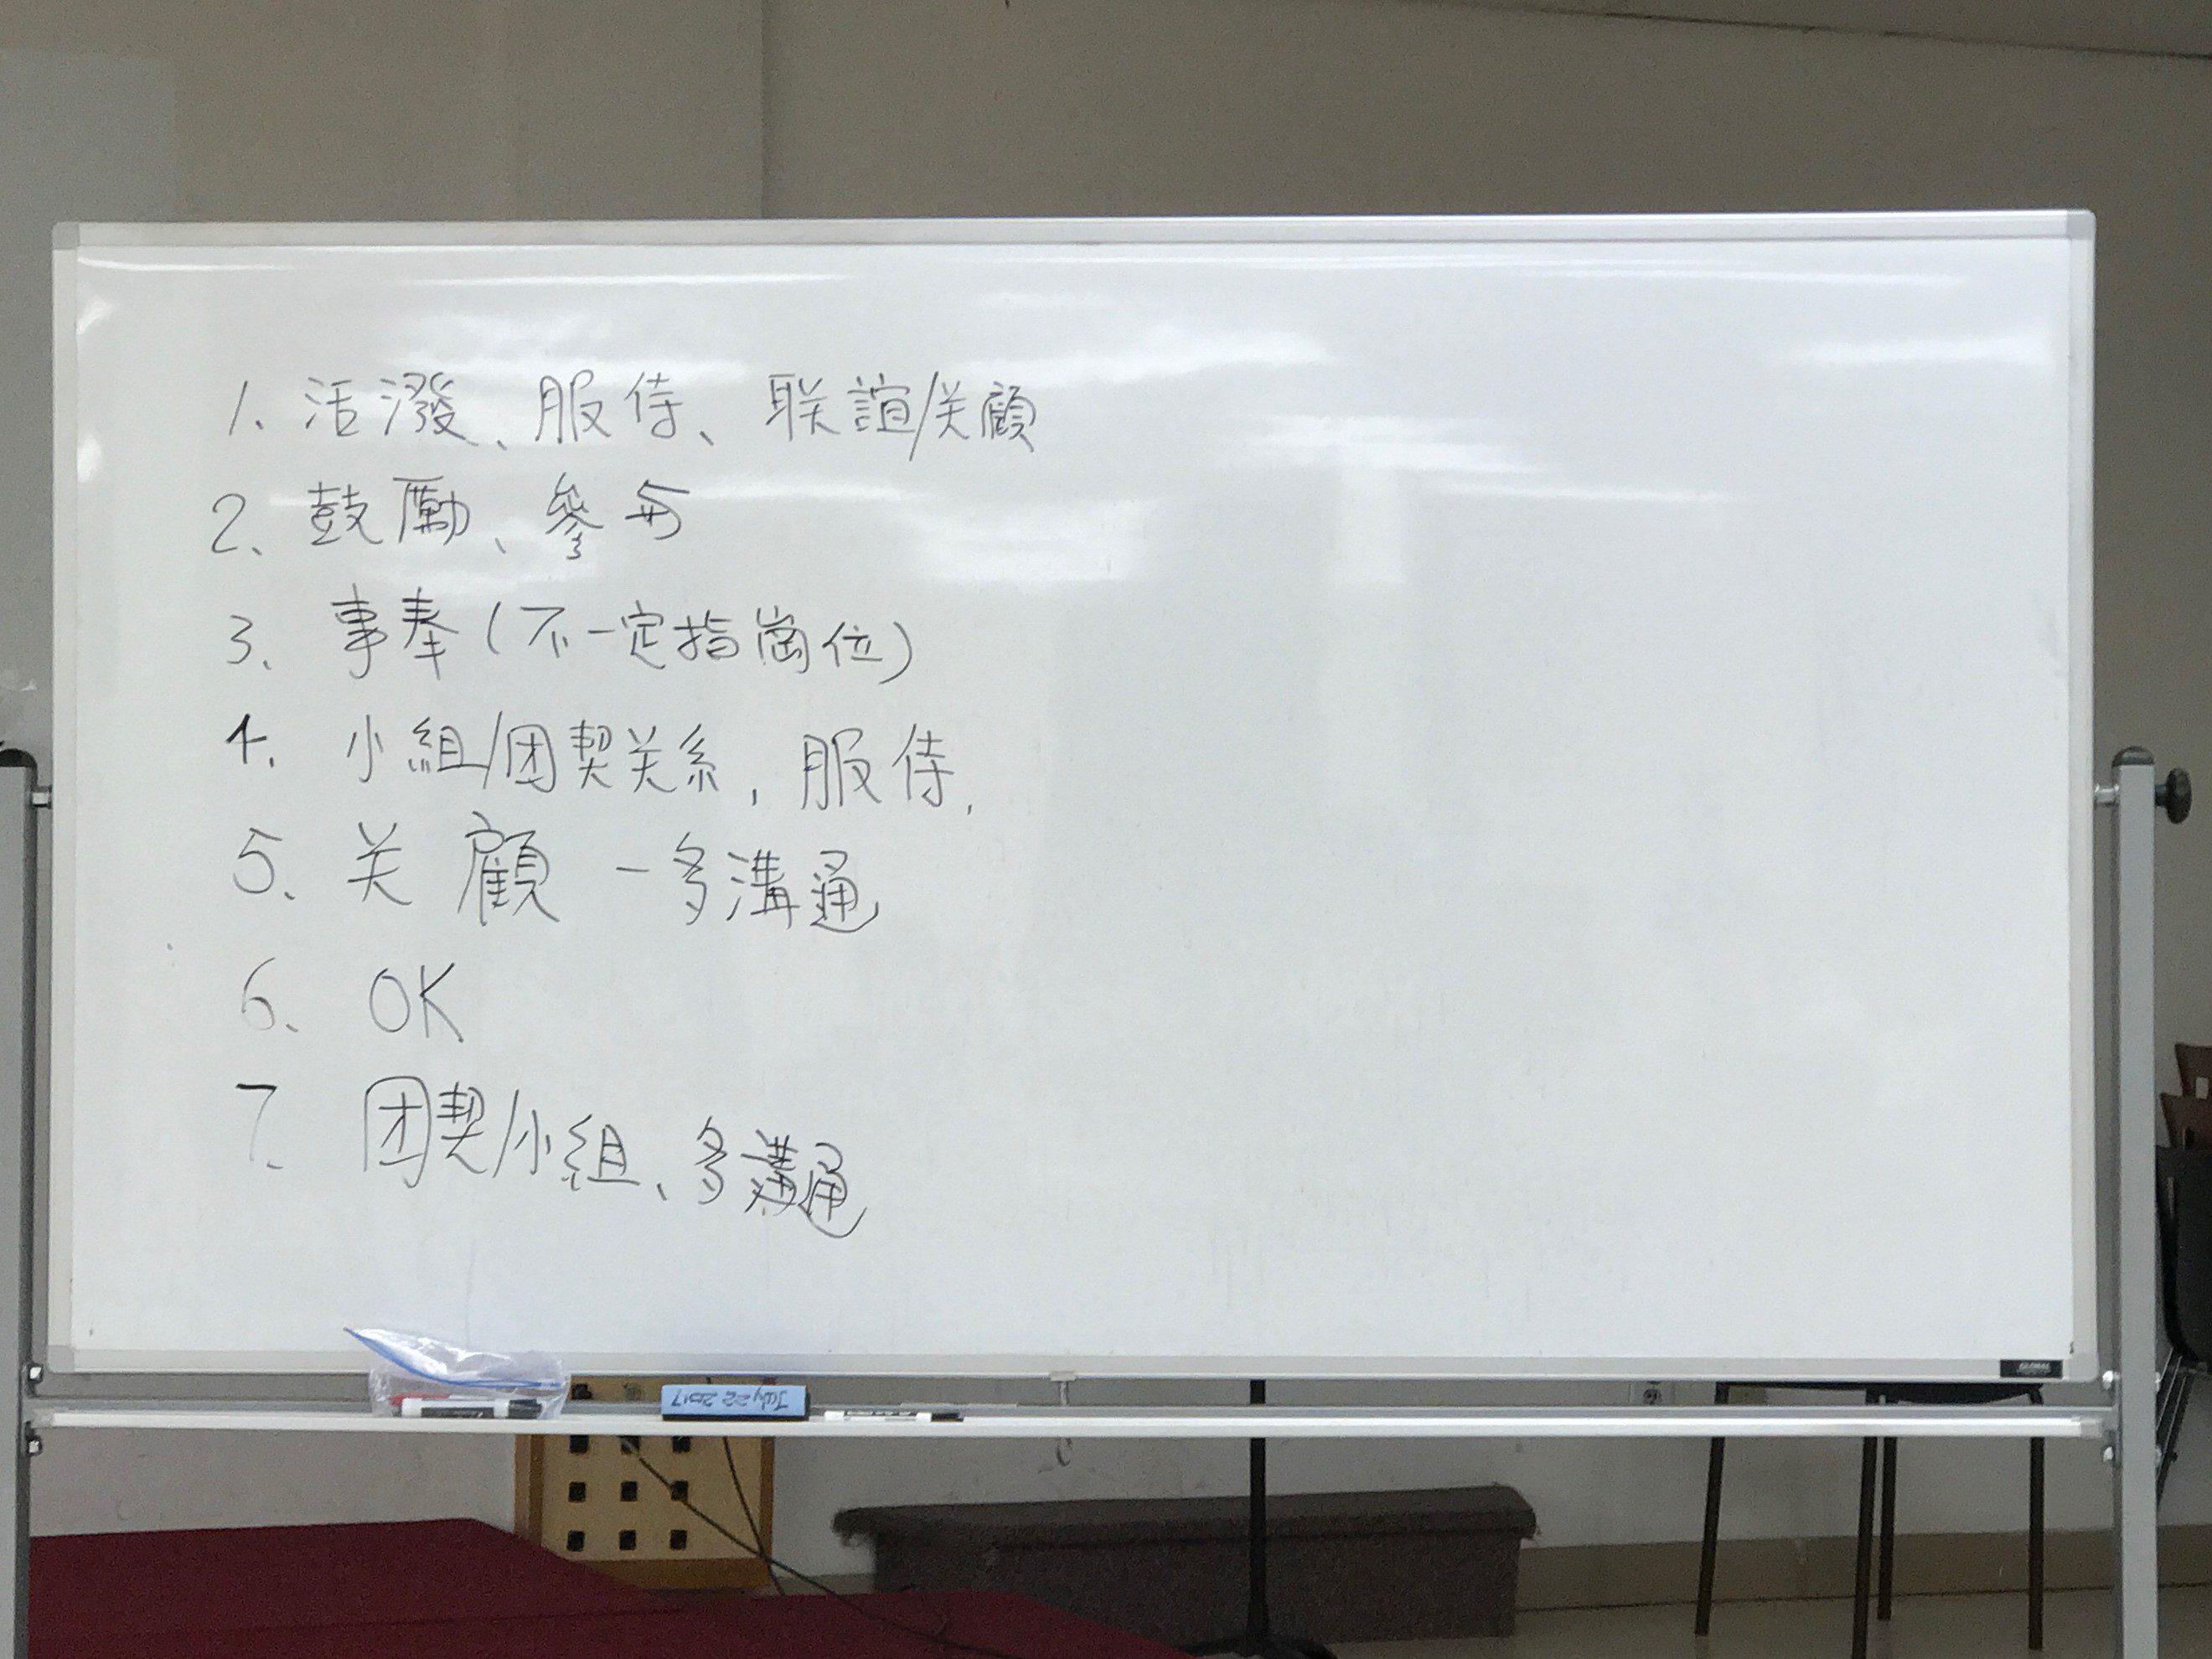 1. 活潑、服侍、联誼/关顧
2. 鼓勵、參与
3. 事奉(不一定指崗位)
4. 小組/团契关系, 服侍,
5. 关顧 - 多溝通
6. OK
7. 团契/小組、多溝通
GLOBAL
July 22 2017